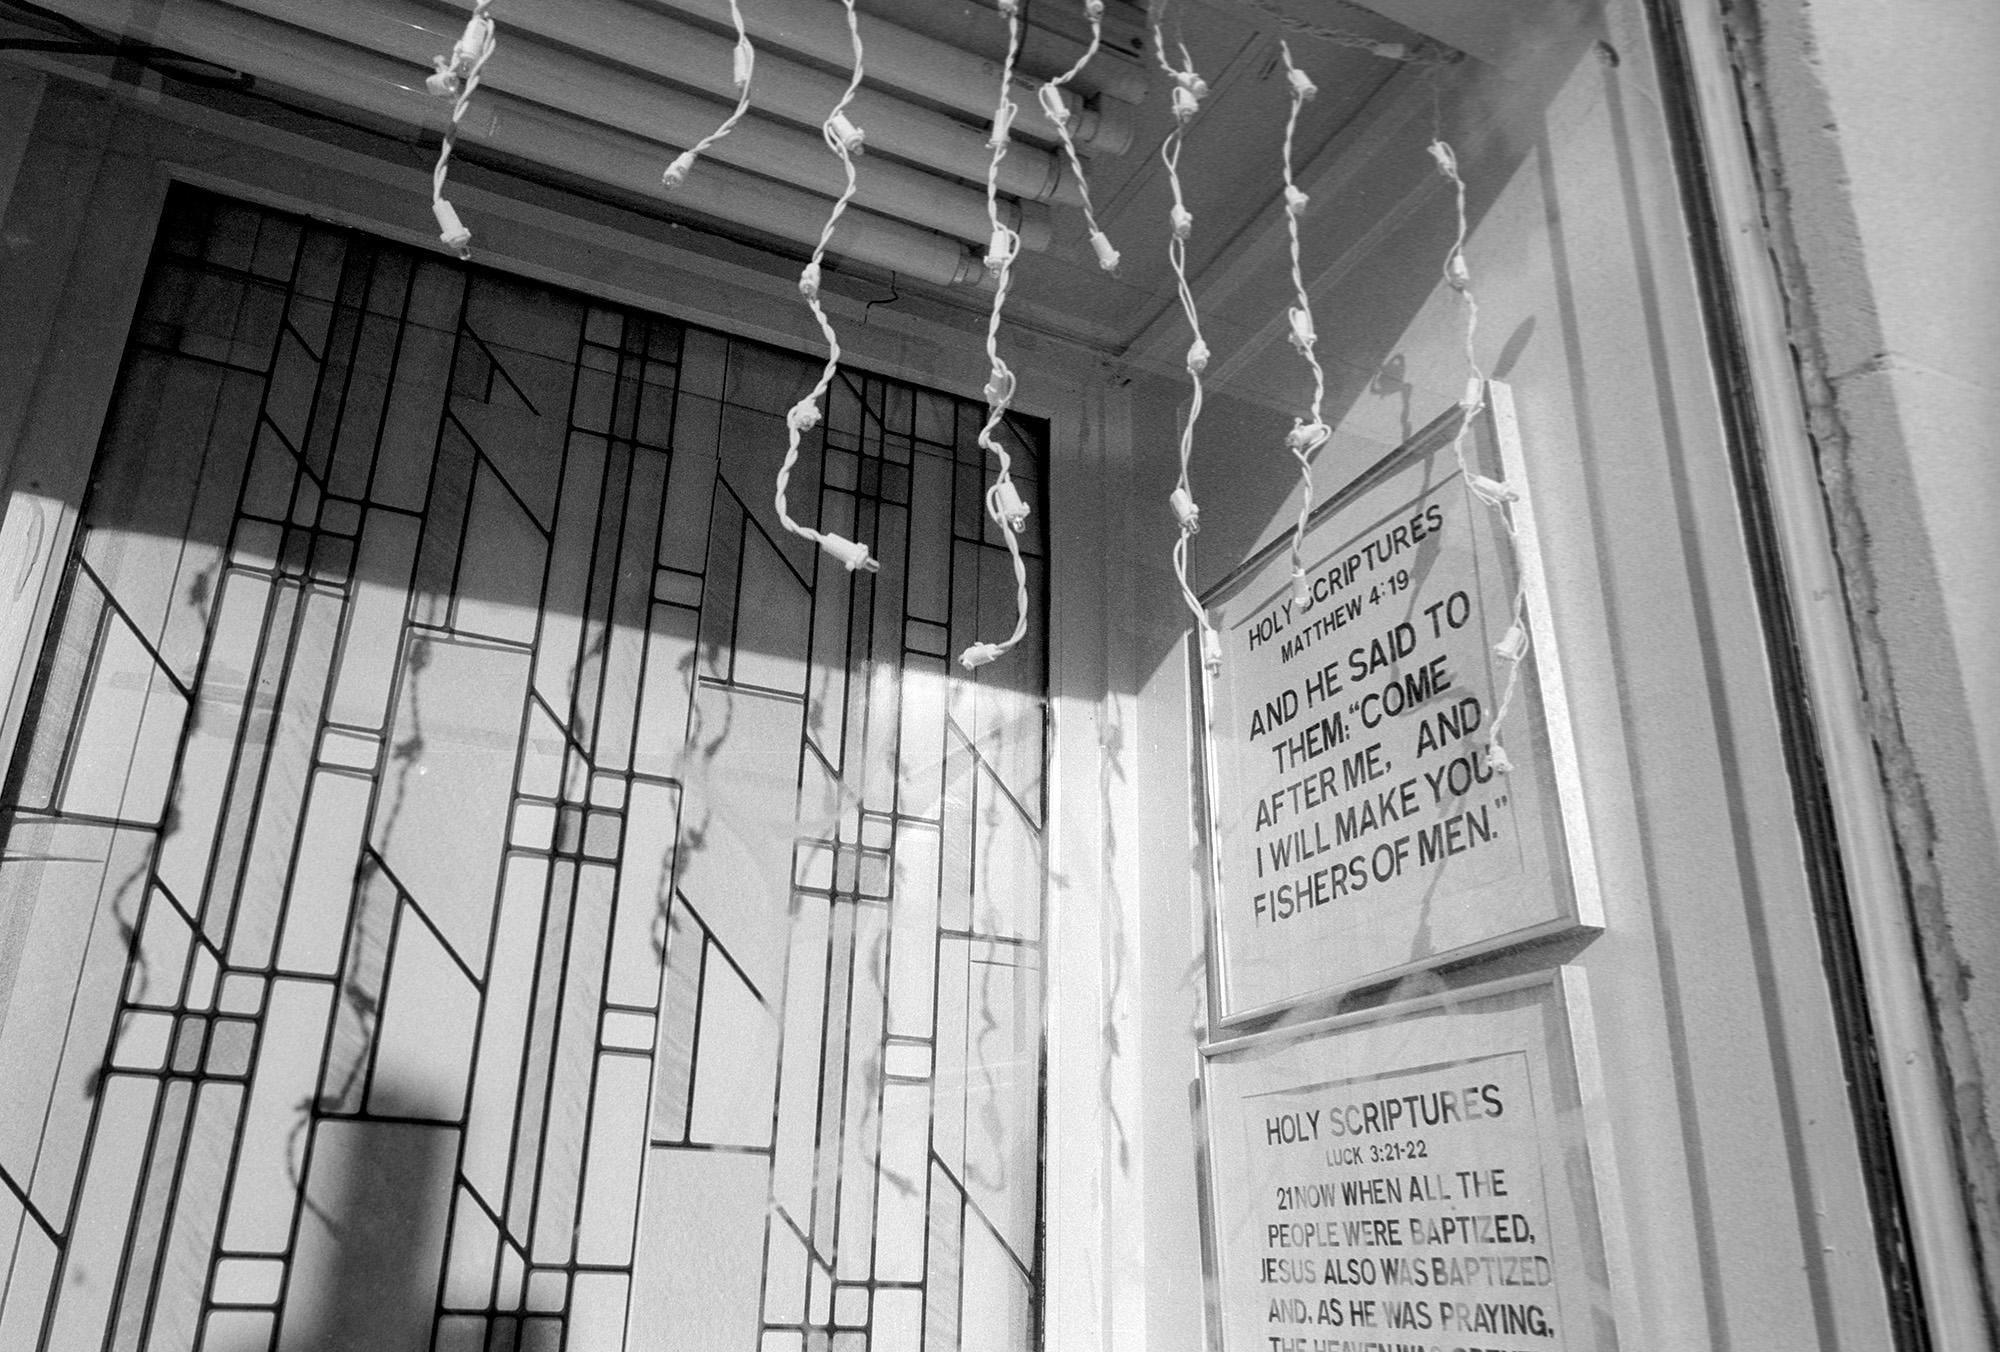 HOLY SCRIPTURES
MATTHEW 4:19
AND HE SAID TO
THEM: "COME
AFTER ME, AND
I WILL MAKE YOU
FISHERS OF MEN."
HOLY SCRIPTURES
LUCK 3:21-22
21 NOW WHEN ALL THE
PEOPLE WERE BAPTIZED,
JESUS ALSO WAS BAPTIZED
AND, AS HE WAS PRAYING,
THE HEAVEN WAS